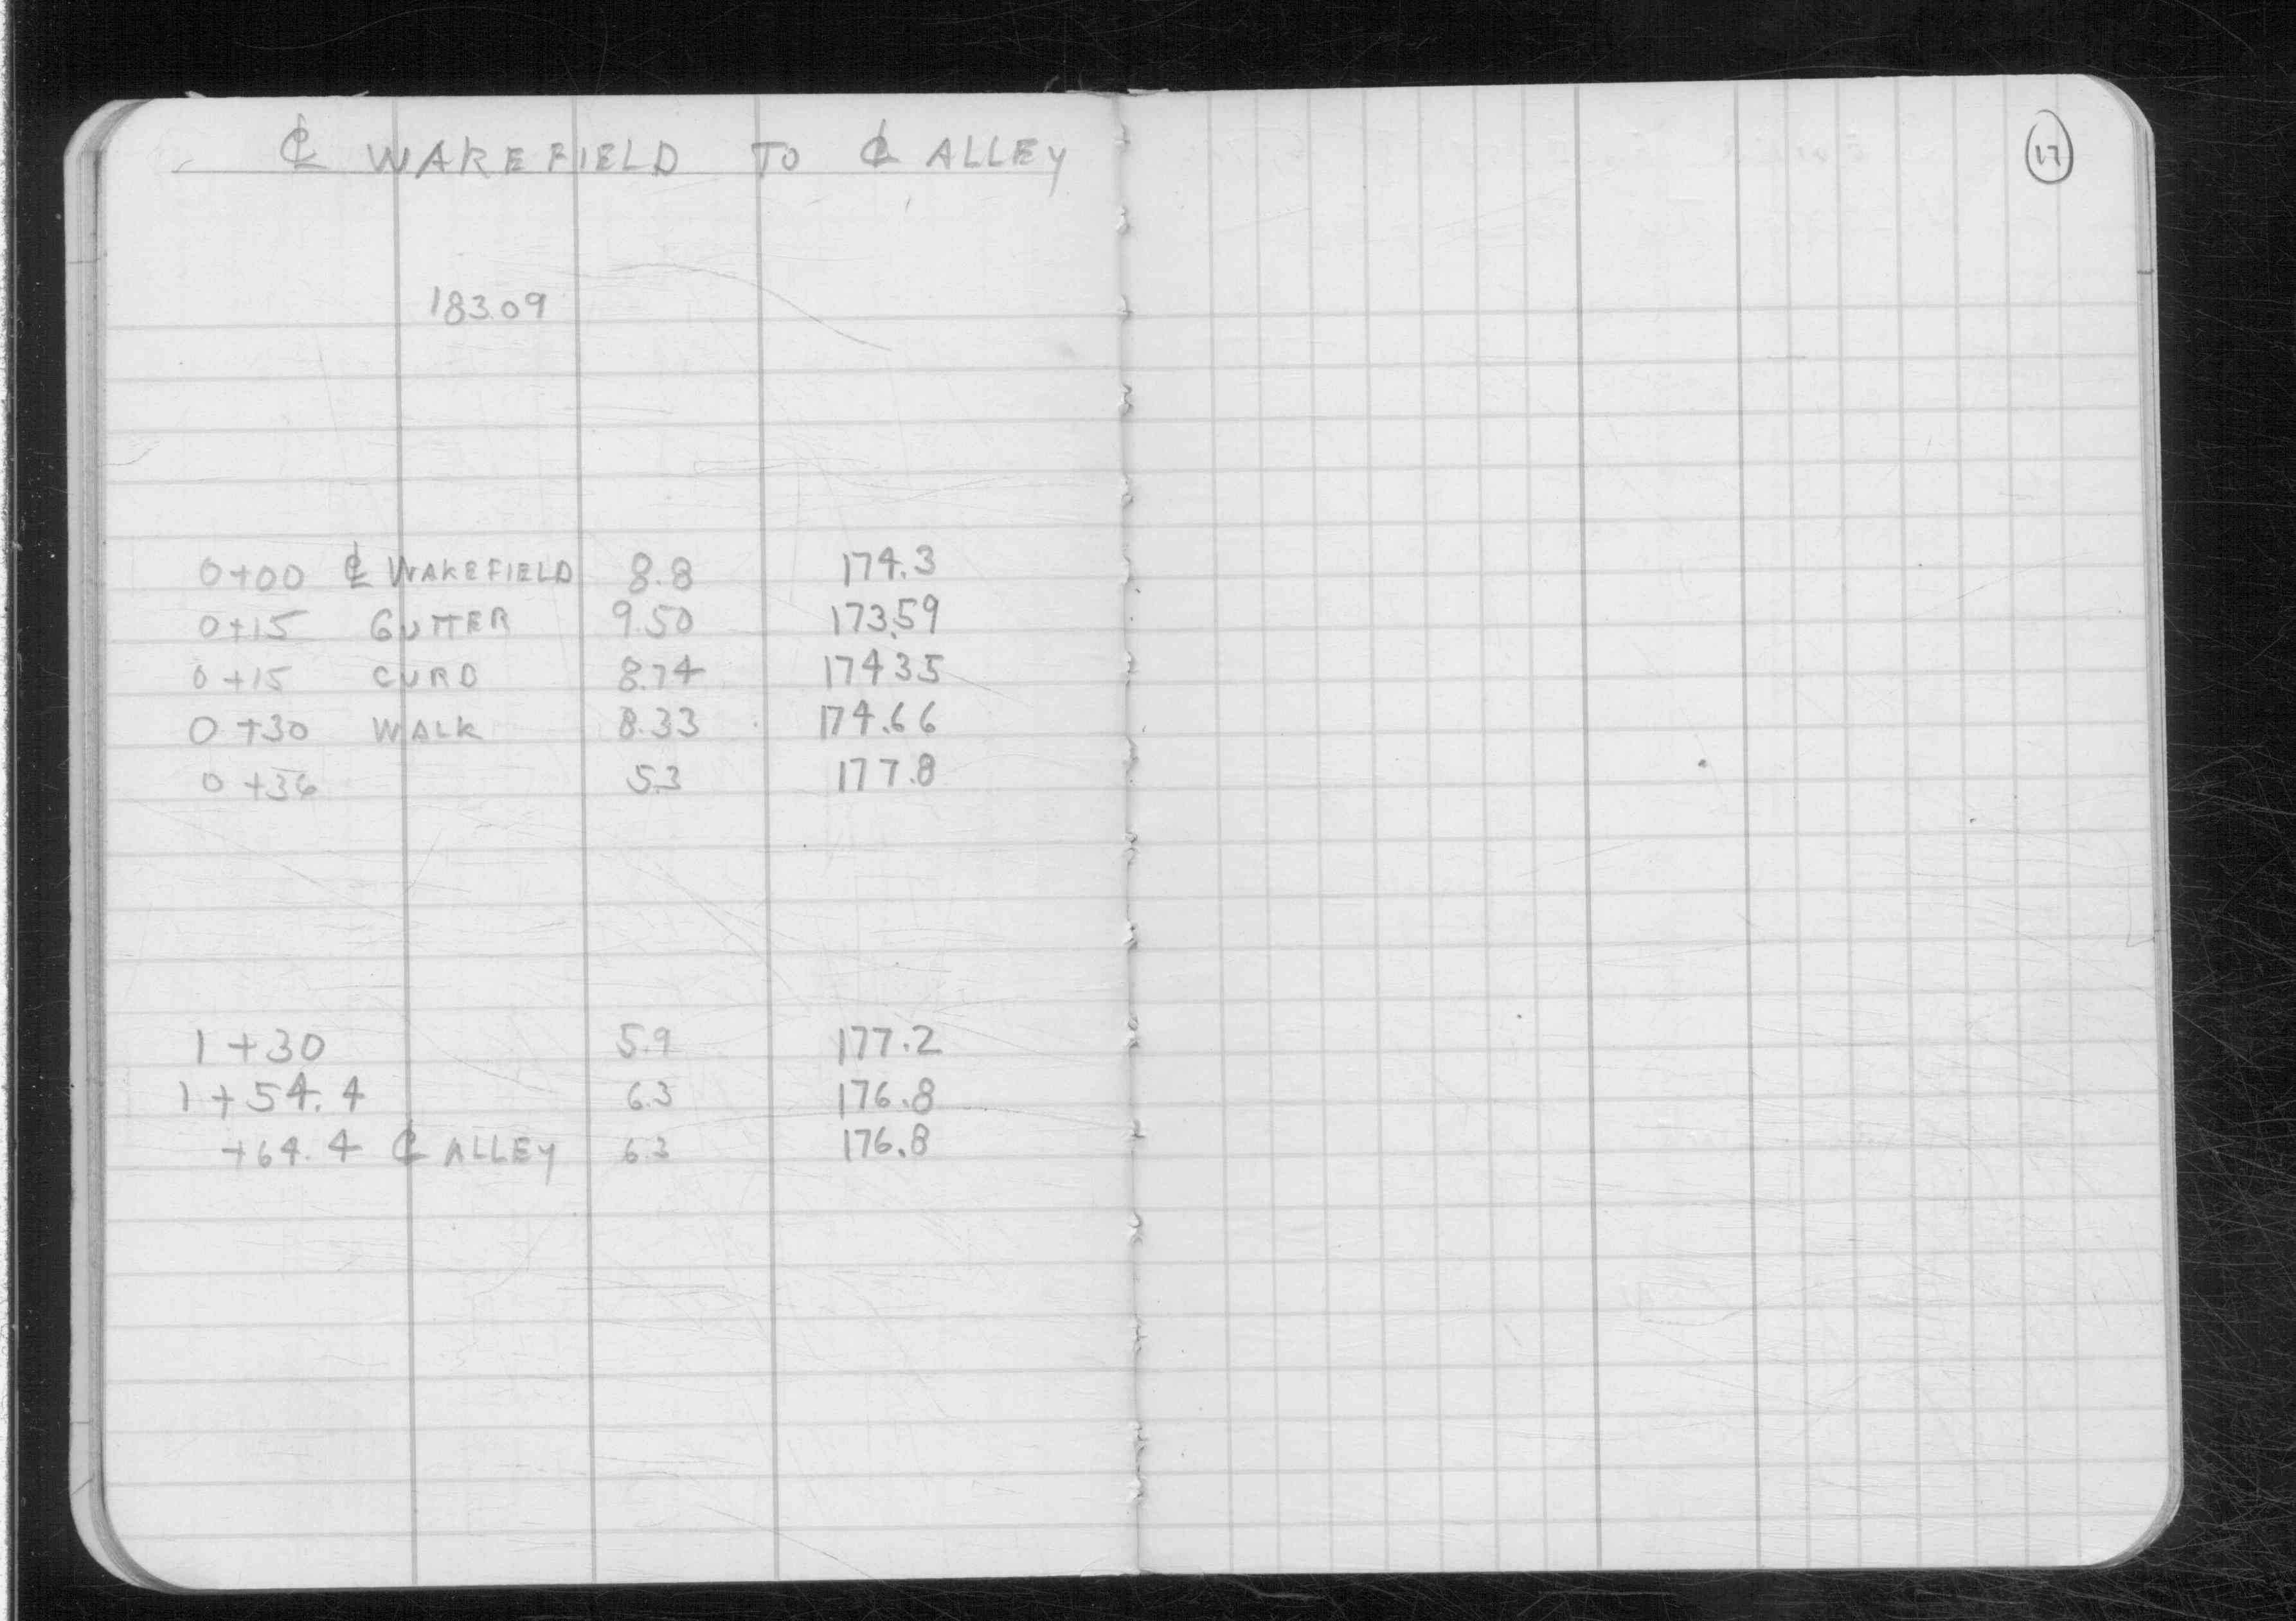 ℄ WAKEFIELD TO ℄ ALLEY
17
183.09
0+00 ℄ WAKEFIELD 8.8 174.3
0+15 GUTTER 9.50 173.59
0+15 CURB 8.74 174 35
0+30 WALK 8.33 174.66
0+36 5.3 177.8
1+30 5.9 177.2
1+54.4 6.3 176.8
+64.4 ℄ ALLEY 6.3 176.8